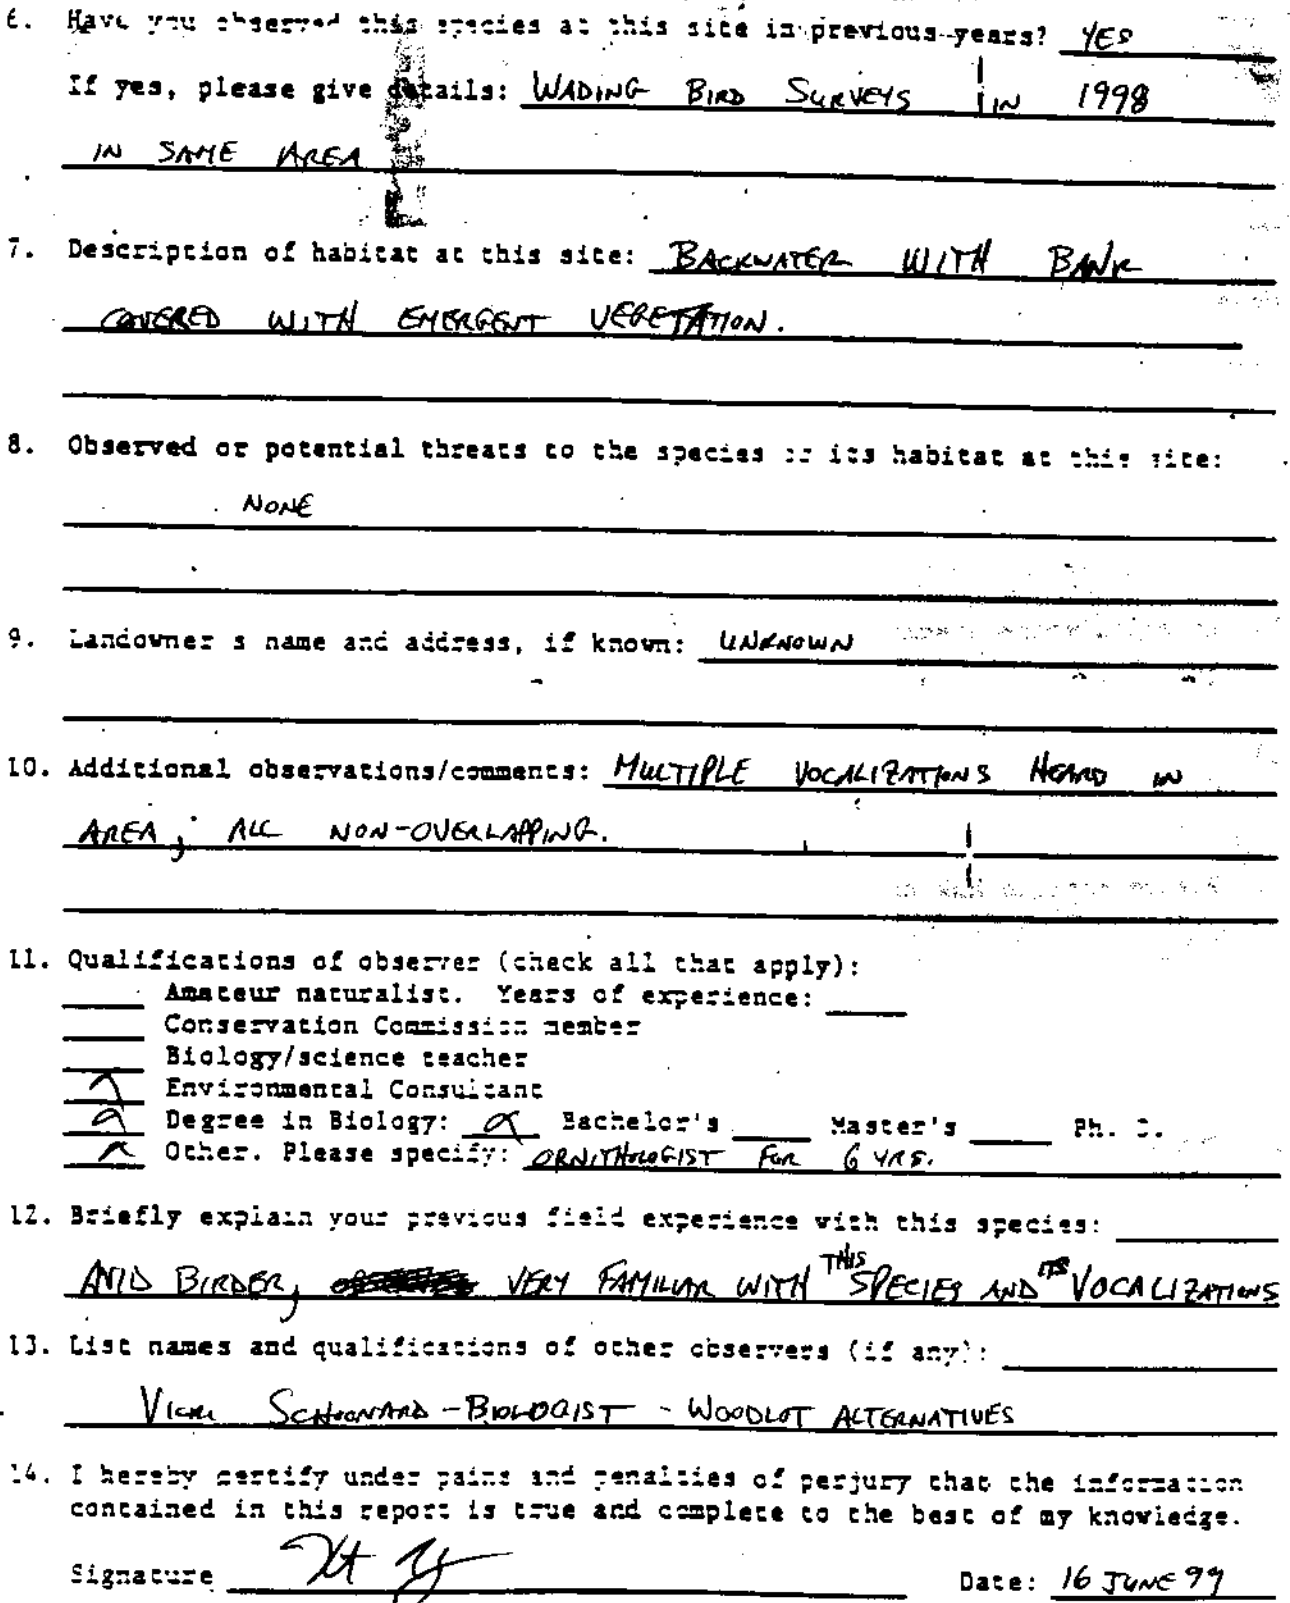 6. Have you observed this species at this site in previous years? YES
If yes, please give details: WADING BIRD SURVEYS IN 1998
IN SAME AREA
7. Description of habitat at this site: BACKWATER WITH BANK
COVERED WITH EMERGENT VEGETATION.
8. Observed or potential threats to the species or its habitat at this site:
NONE
9. Landowner s name and address, if known: UNKNOWN
10. Additional observations/comments: MULTIPLE VOCALIZATIONS HEARD IN
AREA; ALL NON-OVERLAPPING.
11. Qualifications of observer (check all that apply):
Amateur naturalist. Years of experience:
Conservation Commission member
Biology/science teacher
Environmental Consultant
Degree in Biology: Bachelor's Master's Ph. D.
Other. Please specify: ORNITHOLOGIST FOR 6 YRS.
12. Briefly explain your previous field experience with this species:
AVID BIRDER, VERY FAMILIAR WITH THIS SPECIES AND ITS VOCALIZATIONS
13. List names and qualifications of other observers (if any):
- BIOLOGIST - WOODLOT ALTERNATIVES
14. I hereby certify under pains and penalties of perjury that the information
contained in this report is true and complete to the best of my knowledge.
Signature Date: 16 JUNE 99